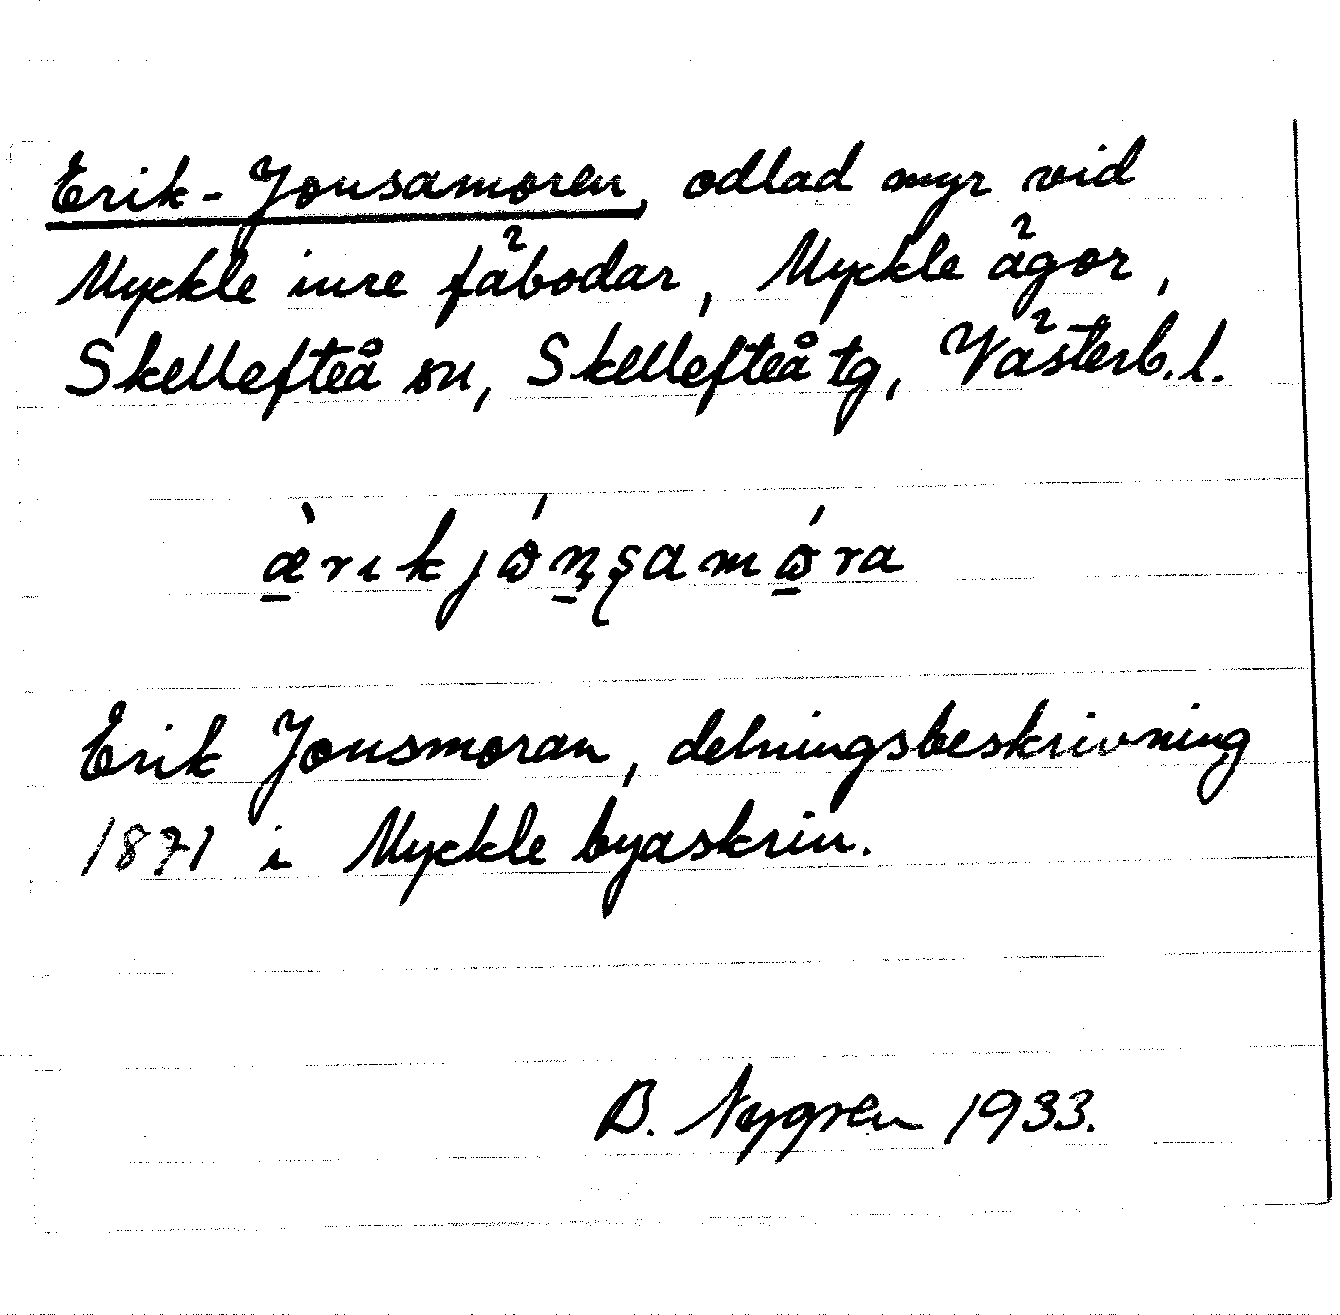 Erik-Jonsamoren, odlad myr vid
Myckle inre fäbodar, Myckle ägor,
Skellefteå sn, Skellefteå tg, Västerb. l.
æ̀rıkjɷ́n̥ʂamɷ́ra
Erik Jonsmoran, delningsbeskrivning
1871 i Myckle byaskrin.
B. Nygren 1933.